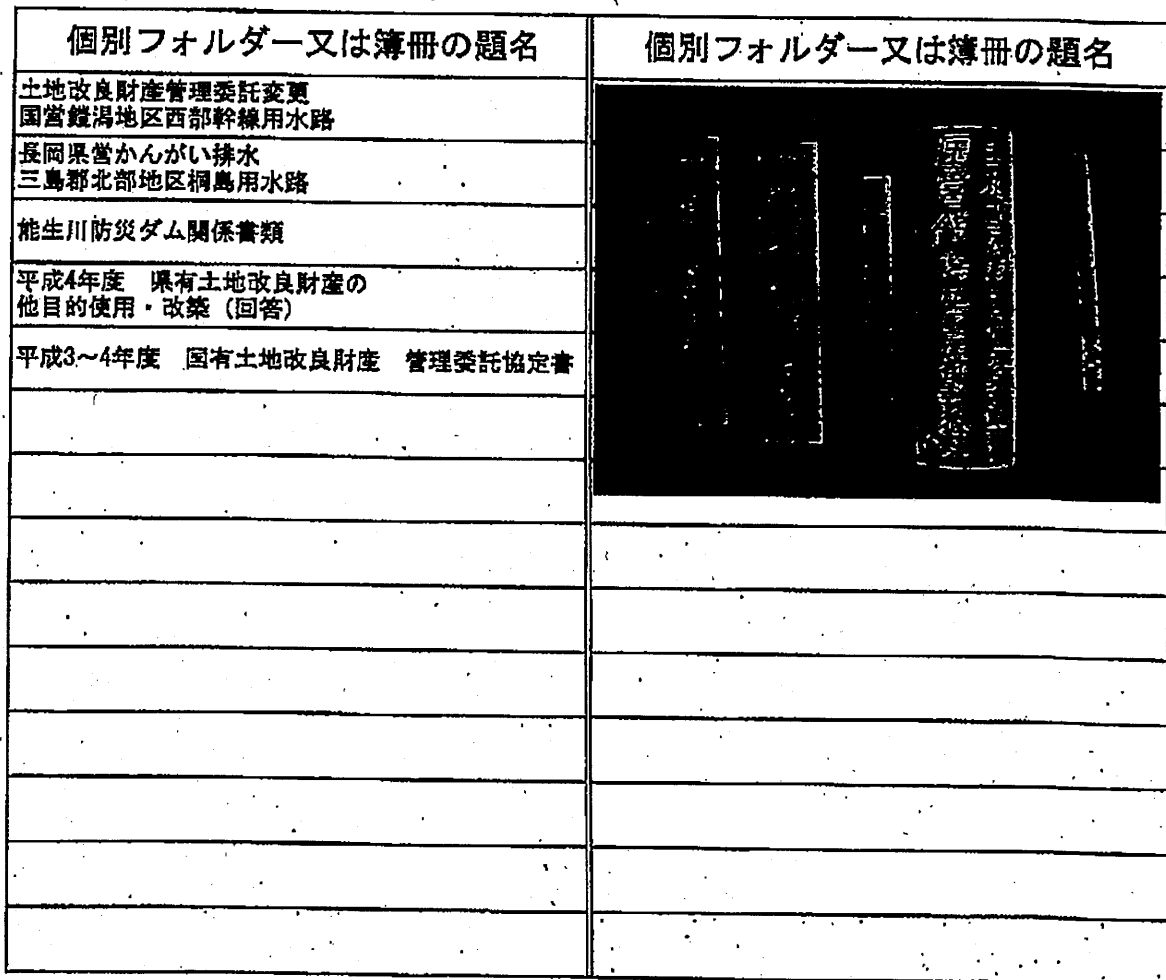 個別フォルダー又は簿冊の題名
土地改良財産管理委託変更
国営鎧潟地区西部幹線用水路
長岡県営かんがい排水
三島郡北部地区桐島用水路
能生川防災ダム関係書類
平成4年度 県有土地改良財産の
他目的使用・改築（回答）
平成3～4年度 国有土地改良財産 管理委託協定書
個別フォルダー又は簿冊の題名